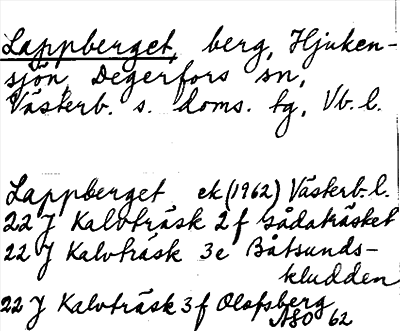 Lappberget, berg, Hjuken-
sjön, Degerfors sn,
Västerb. s. doms. tg, Vb. l.
Lappberget ek (1962) Västerb. l.
22 J Kalvträsk 2 f Gådaträsket
22 J Kalvträsk 3e Båtsunds-
kludden
22 J Kalvträsk 3 f Olofsberg
NSO 62